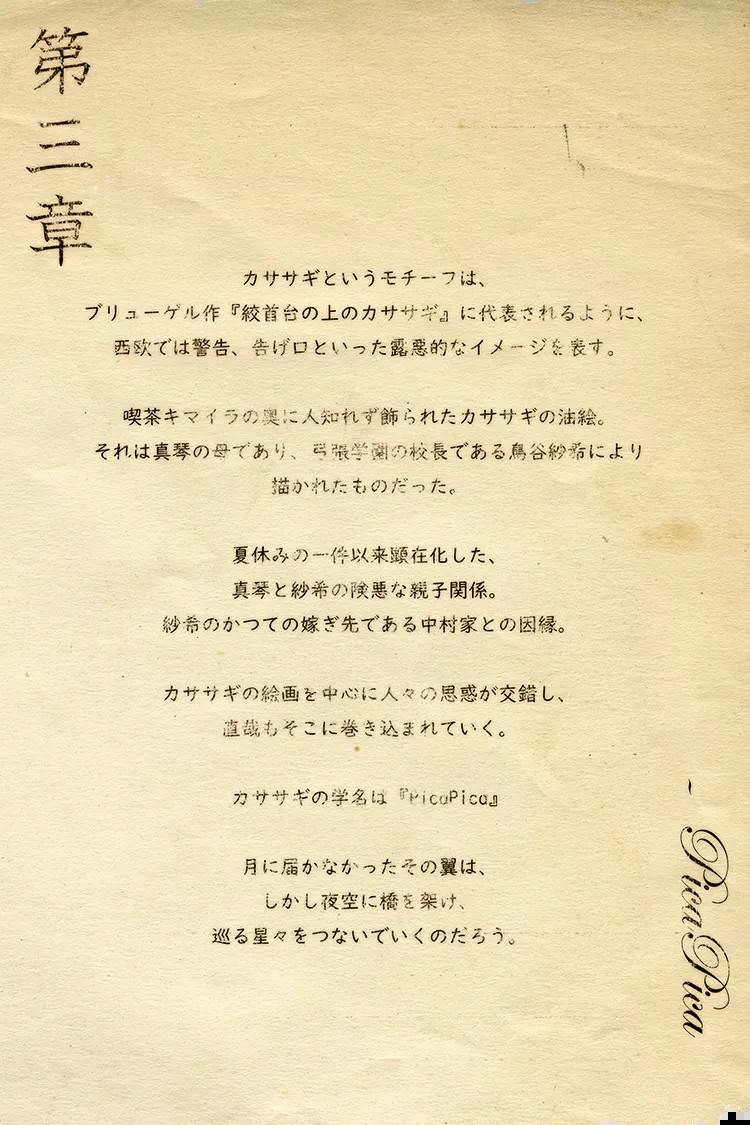 第三章
カササギというモチーフは、
ブリューゲル作『絞首台の上のカササギ』に代表されるように、
西欧では警告、告げ口といった露悪的なイメージを表す。
喫茶キマイラの奥に人知れず飾られたカササギの油絵。
それは真琴の母であり、弓張学園の校長である鳥谷紗希により
描かれたものだった。
夏休みの一件以来顕在化した、
真琴と紗希の険悪な親子関係。
紗希のかつての嫁ぎ先である中村家との因縁。
カササギの絵画を中心に人々の思惑が交錯し、
直哉もそこに巻き込まれていく。
カササギの学名は『PicaPica』
月に届かなかったその翼は、
しかし夜空に橋を架け、
巡る星々をつないでいくのだろう。
~ PicaPica